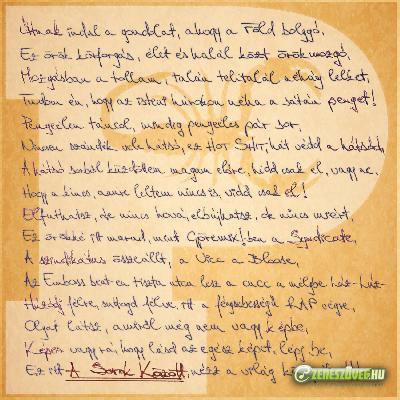 Útnak indul a gondolat, ahogy a Föld bolygó,
Ez örök körforgás, élet és halál közt örökmozgó,
Mozgásban a tollam, talán telitalál néhány lelket,
Tudom én, hogy az isteni húrokon néha a sátán penget!
Pengeélen táncol, mindég pengeéles pár sor,
Nincsen szándék vele hátsó, ez HOT SHIT, hát védd a hátsód,
A hátsó sorból küzdöttem magam előre, hidd csak el, vagy ne.
Hogy a kincs, amire leltem nincs is, vidd csak el!
Elfuthatsz, de nincs hova, elbújhatsz, de nincs miért,
Ez örökké itt marad, mint Géremisk! ben a Syndicate,
A szindikátus összeállt, a Vicc a Bloose,
Az Emboss beat-en tiszta utca lesz a cucc a mélybe húz-húz
Húzódj félre, suttogd félve, itt a fénysebességű RAP végre,
Olyat látsz, amiről még nem vagy képbe,
Képes vagy rá, hogy lásd az egész képet, lépj be,
Ez itt A Sorok Között, nézz a világ
ZENESZÖVEG.HU